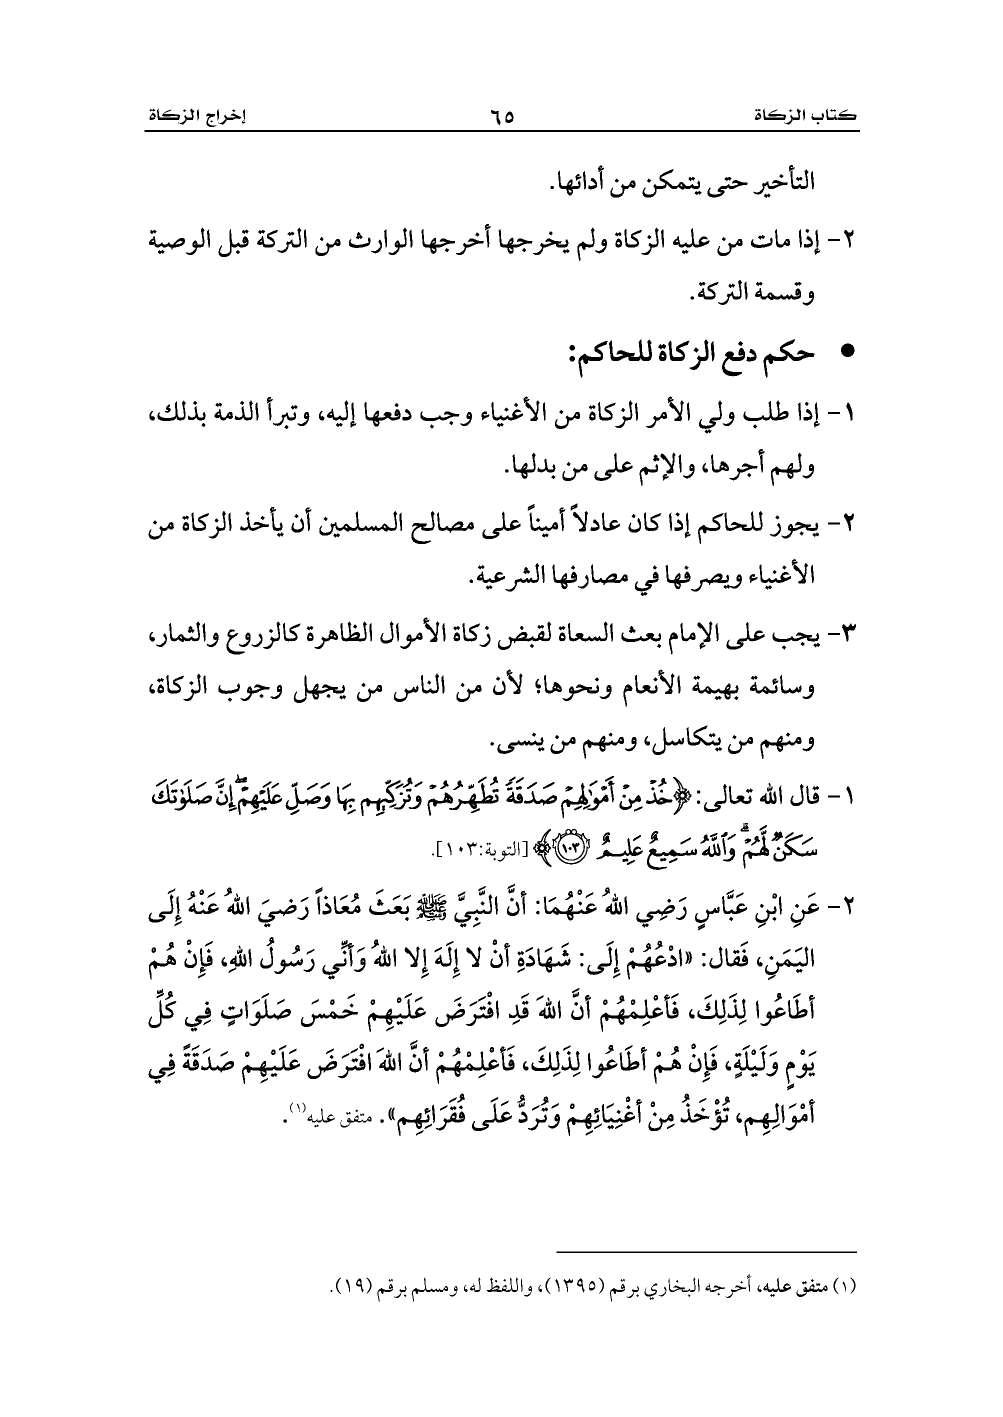 كتاب الزكاة ٦٥ إخراج الزكاة
التأخير حتى يتمكن من أدائها.
٢- إذا مات من عليه الزكاة ولم يخرجها أخرجها الوارث من التركة قبل الوصية
وقسمة التركة.
● حكم دفع الزكاة للحاكم:
١- إذا طلب ولي الأمر الزكاة من الأغنياء وجب دفعها إليه، وتبرأ الذمة بذلك،
ولهم أجرها، والإثم على من بدلها.
٢- يجوز للحاكم إذا كان عادلاً أميناً على مصالح المسلمين أن يأخذ الزكاة من
الأغنياء ويصرفها في مصارفها الشرعية.
٣- يجب على الإمام بعث السعاة لقبض زكاة الأموال الظاهرة كالزروع والثمار،
وسائمة بهيمة الأنعام ونحوها؛ لأن من الناس من يجهل وجوب الزكاة،
ومنهم من يتكاسل، ومنهم من ينسى.
١- قال الله تعالى: ﴿خُذْ مِنْ أَمْوَٰلِهِمْ صَدَقَةً تُطَهِّرُهُمْ وَتُزَكِّيهِم بِهَا وَصَلِّ عَلَيْهِمْ ۖ إِنَّ صَلَوٰتَكَ
سَكَنٌ لَّهُمْ ۗ وَٱللَّهُ سَمِيعٌ عَلِيمٌ ١٠٣﴾ [التوبة:١٠٣].
٢- عَنِ ابْنِ عَبَّاسٍ رَضِي اللهُ عَنْهُمَا: أنَّ النَّبِيَّ ﷺ بَعَثَ مُعَاذاً رَضيَ اللهُ عَنْهُ إِلَى
اليَمَنِ، فَقال: «ادْعُهُمْ إِلَى: شَهَادَةِ أنْ لا إِلَهَ إلا اللهُ وَأنِّي رَسُولُ اللهِ، فَإِنْ هُمْ
أطَاعُوا لِذَلِكَ، فَأعْلِمْهُمْ أنَّ اللهَ قَدِ افْتَرَضَ عَلَيْهِمْ خَمْسَ صَلَوَاتٍ فِي كُلِّ
يَوْمٍ وَلَيْلَةٍ، فَإِنْ هُمْ أطَاعُوا لِذَلِكَ، فَأعْلِمْهُمْ أنَّ اللهَ افْتَرَضَ عَلَيْهِمْ صَدَقَةً فِي
أمْوَالِهِم، تُؤْخَذُ مِنْ أغْنِيَائِهِمْ وَتُرَدُّ عَلَى فُقَرَائِهِم». متفق عليه(١).
(١) متفق عليه، أخرجه البخاري برقم (١٣٩٥)، واللفظ له، ومسلم برقم (١٩).